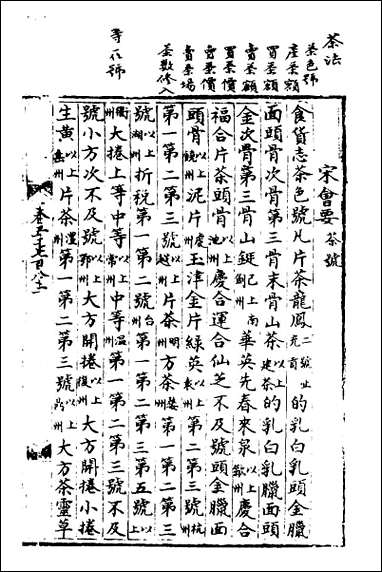 茶法
茶色號
產茶額
買茶額
賣茶額
買茶價
賣茶價
賣茶場
茶數倐入
等第號
宋會要 茶號
食貨志茶色號凡片茶龍鳳二號此的乳白乳頭金臘
面頭骨次骨第三骨末骨山茶以上建茶的乳白乳臘面頭
金次骨第三骨山鋌已上南劍州華英先春來泉以上歙州慶合
福合片茶頭骨池州慶合運合仙芝不及號頭金臘面
頭骨以上饒州泥片虔州玉津金片綠英袁州第二第三號杭州
第一第二第三號以上越州片茶明州方茶婺州第一第二第三
號以上湖州折稅第一第二號台州第一第二第三第五號以上
衢州大捲上等中等以上常州中等溫州第一第二第三號不及
號小方次不及號以上鄂州大方開捲以上復州大方開捲小捲
生黃以上岳州片茶澧州第一第二第三號以上鼎州大方茶靈草